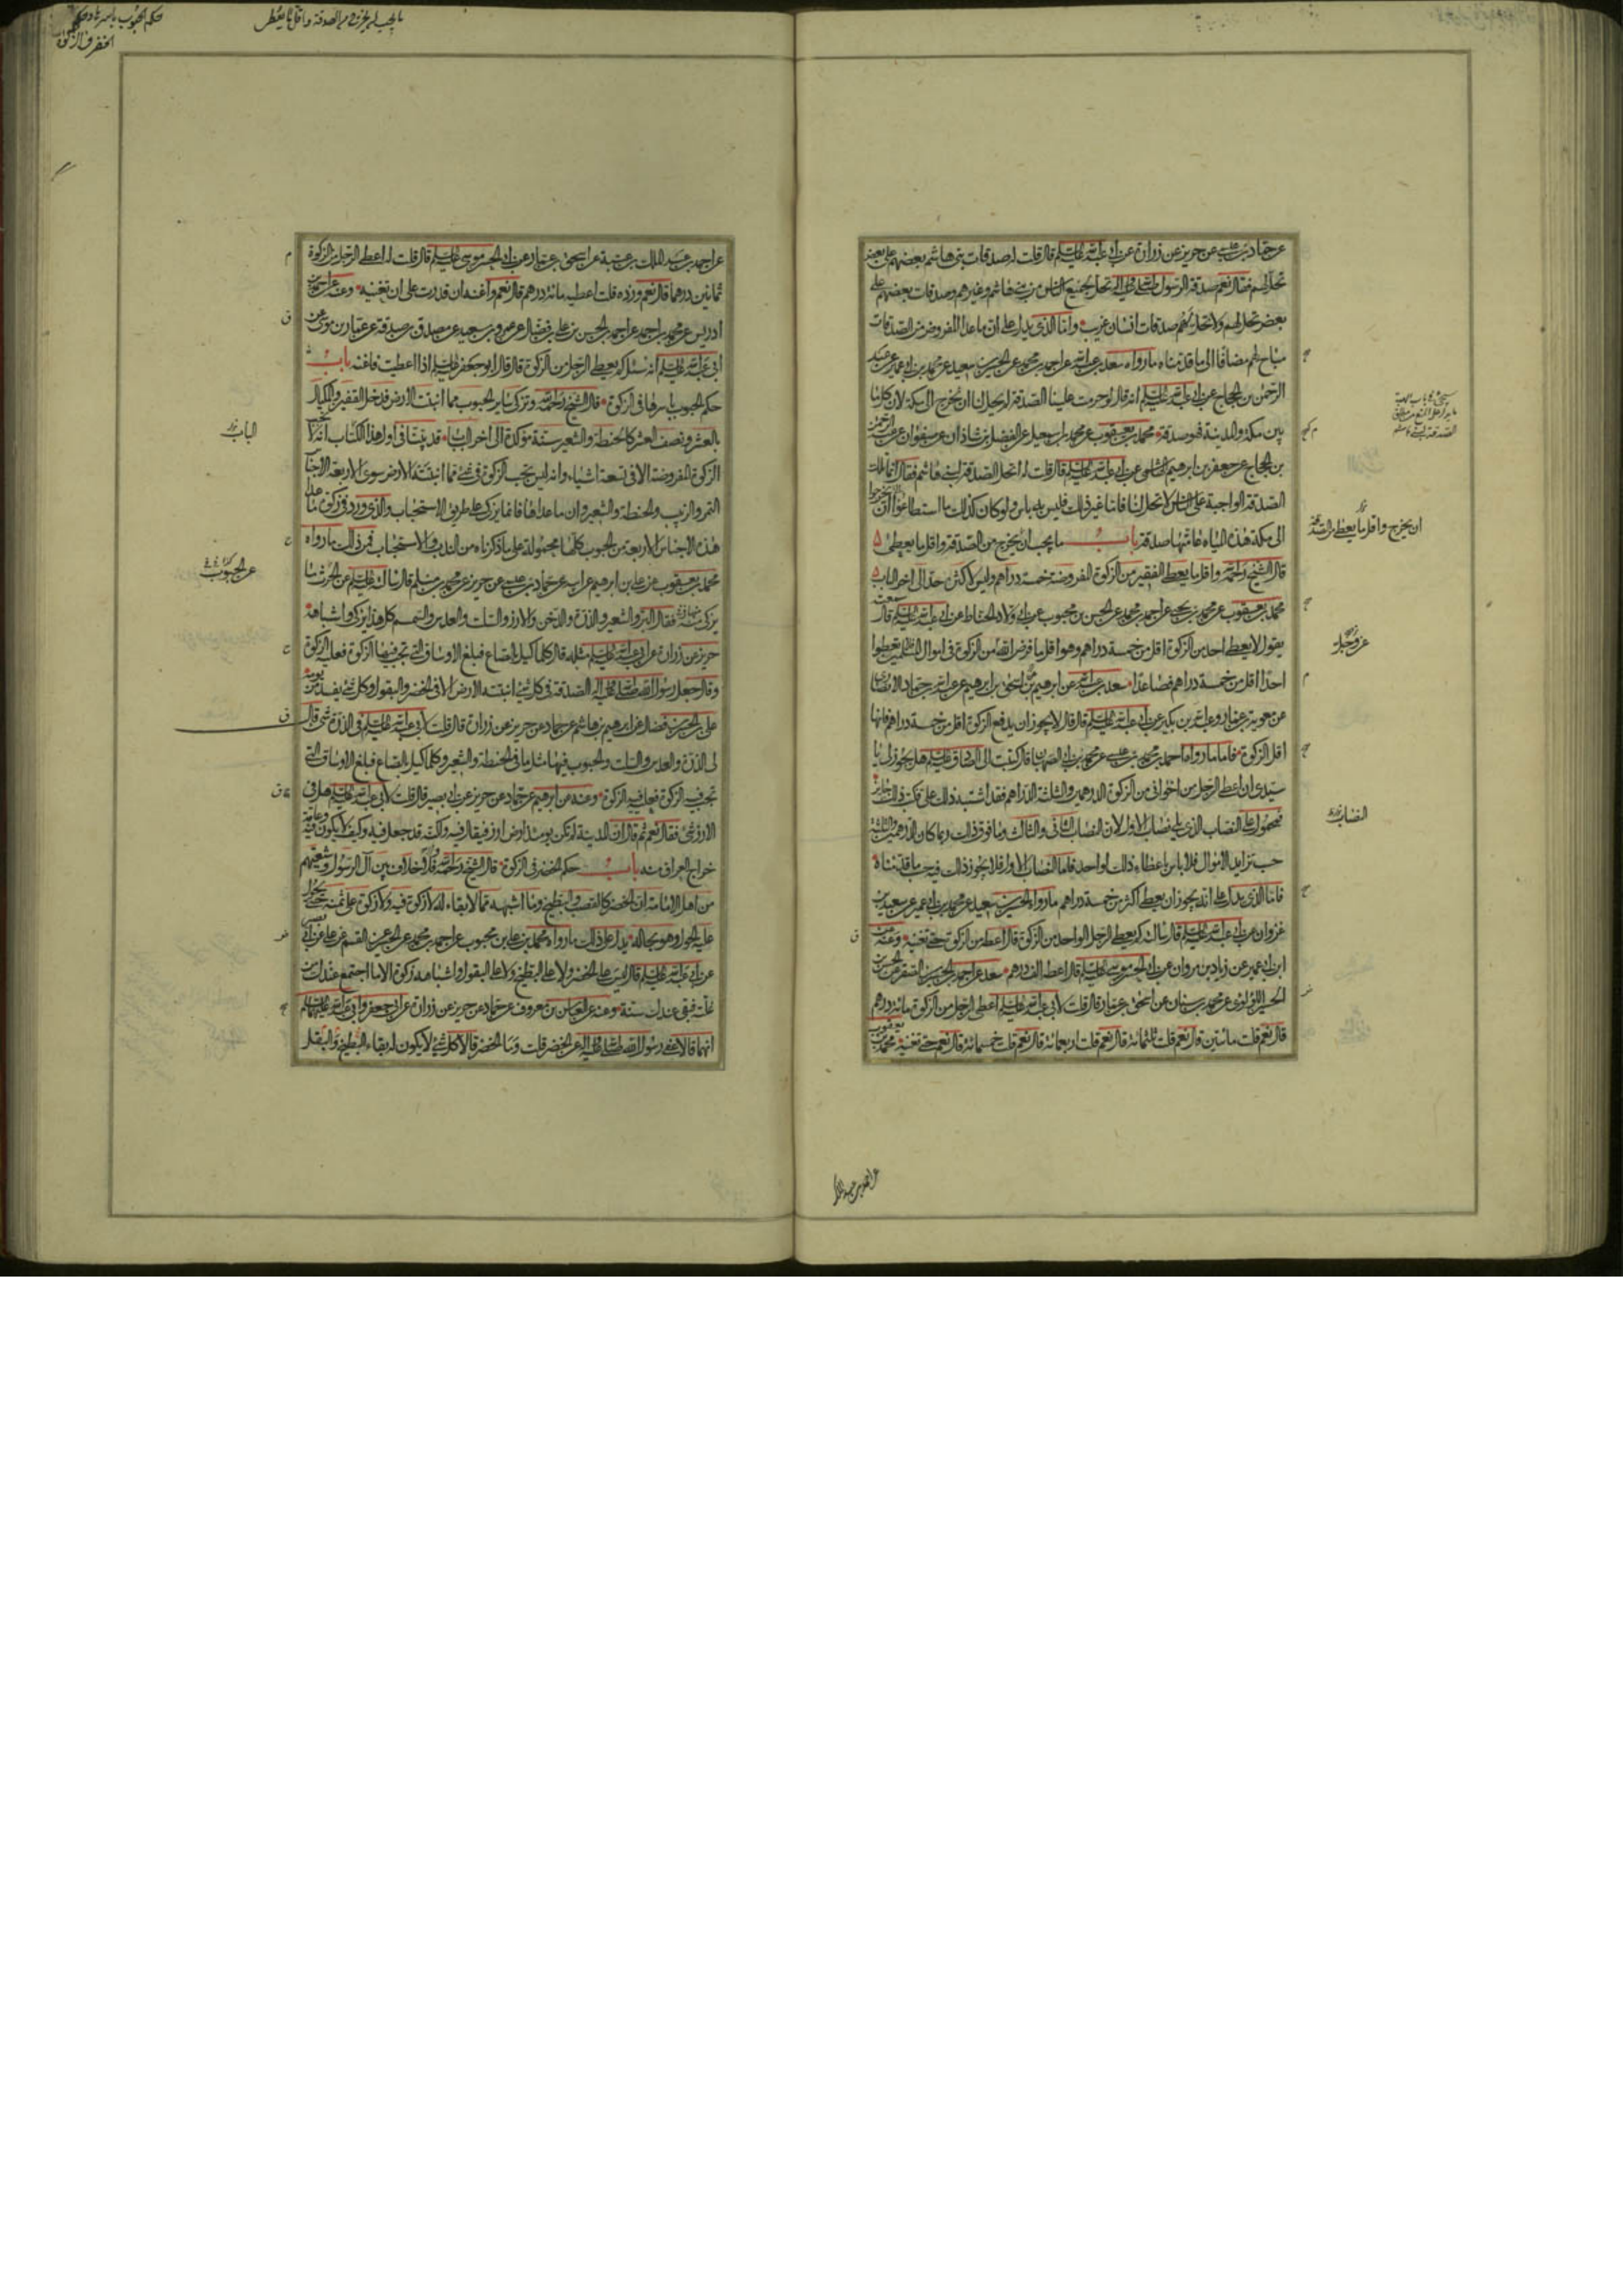 عن حماد بن عيسى عن حريز عن زرارة عن ابى عبد الله عليه السلام قال قلت له صدقات بنى هاشم بعضهم على بعض
تحل لهم فقال نعم صدقة الرسول صلى الله عليه واله تحل لجميع الناس من بنى هاشم وغيرهم وصدقات بعضهم على
بعض تحل لهم ولا تحل لهم صدقات انسان غريب وانا الذى يدل على ان ما عدا المفروض من الصدقات
مباح لهم مضافا الى ما قدمناه ما رواه سعد بن عبد الله عن احمد بن محمد عن الحسين بن سعيد عن محمد بن ابى عمير عن عبد
الرحمن بن الحجاج عن ابى عبد الله عليه السلام انه قال لو حرمت علينا الصدقة لم يحل لنا ان نخرج الى مكة لان كل ما
بين مكة والمدينة فهو صدقة محمد بن يعقوب عن محمد بن اسمعيل عن الفضل بن شاذان عن صفوان عن عبد الرحمن
بن الحجاج عن جعفر بن ابرهيم الهاشمى عن ابى عبد الله عليه السلام قال قلت له اتحل الصدقة لبنى هاشم فقال انما تلك
الصدقة الواجبة على الناس لا تحل لنا فاما غير ذلك فليس به باس ولو كان كذلك ما استطاعوا ان يخرجوا
الى مكة هذه المياه عامتها صدقة باب ما يجب ان يخرج من الصدقة واقل ما يعطى
قال الشيخ رحمه الله واقل ما يعطى الفقير من الزكوة المفروضة خمسة دراهم وليس لاكثره حد الى اخر الباب
محمد بن يعقوب عن محمد بن يحيى عن احمد بن محمد عن الحسن بن محبوب عن ابى ولاد الحناط عن ابى عبد الله عليه السلام قال سمعته
يقول لا يعطى احد من الزكوة اقل من خمسة دراهم وهو اقل ما فرض الله من الزكوة فى اموال المسلمين فلا تعطوا
احدا اقل من خمسة دراهم فصاعدا سعد بن عبد الله عن ابرهيم بن اسحق بن ابرهيم عن عبد الله بن حماد الانصارى
عن معوية بن عمار وعبد الله بن بكير عن ابى عبد الله عليه السلام قال قال لا يجوز ان يدفع الزكوة اقل من خمسة دراهم فانها
اقل الزكوة فاما ما رواه احمد بن محمد بن عيسى عن محمد بن ابى الصهبان قال كتبت الى الصادق عليه السلام هل يجوز لى يا
سيدى ان اعطى الرجل من اخوانى من الزكوة الدرهمين والثلثة الدراهم فقد اشتبه ذلك على فكتب ذلك جائز
فمحمول على النصاب الذى يلى نصاب الاول لان النصاب الثانى والثالث وما فوق ذلك ربما كان الدرهمين والثلثة
حسب تزايد الاموال فلا باس باعطاء ذلك لواحد فاما النصاب الاول فلا يجوز ذلك فيه حسب ما قدمناه
فاما الذى يدل على انه يجوز ان يعطى اكثر من خمسة دراهم ما رواه الحسين بن سعيد عن محمد بن ابى عمير عن سعيد بن
غزوان عن ابى عبد الله عليه السلام قال سالته كم يعطى الرجل الواحد من الزكوة قال اعطه من الزكوة حتى تغنيه وعنه عن
ابن ابى عمير عن زياد بن مروان عن ابى الحسن موسى عليه السلام قال اعطه الف درهم سعد عن احمد بن الحسين بن الصقر عن الحسن بن
الحسين اللؤلؤى عن محمد بن سنان عن اسحق بن عمار قال قلت لابى عبد الله عليه السلام اعطى الرجل من الزكوة مائة درهم
قال نعم قلت مائتين قال نعم قلت ثلثمائة قال نعم قلت اربعمائة قال نعم قلت خمسمائة قال نعم حتى تغنيه محمد بن يعقوب
ان يخرج واقل ما يعطى من الصدقة
عز وجل
النصاب
ما يجب ان يخرج من الصدقة واقل ما يعطى
حكم الحبوب باسرها وحكم
الخضر فى الزكوة
عن احمد بن عبد الملك بن عتبة عن اسحق بن عمار عن ابى الحسن موسى عليه السلام قال قلت له اعطى الرجل من الزكوة
ثمانين درهما قال نعم وزده قلت اعطيه مائة درهم قال نعم واغنه ان قدرت على ان تغنيه وعنه عن احمد بن
ادريس عن محمد بن احمد عن احمد بن الحسن بن على بن فضال عن عمرو بن سعيد عن مصدق بن صدقة عن عمار بن موسى عن
ابى عبد الله عليه السلام انه سئل كم يعطى الرجل من الزكوة قال قال ابو جعفر عليه السلام اذا اعطيت فاغنه باب
حكم الحبوب باسرها فى الزكوة قال الشيخ رحمه الله وتزكى سائر الحبوب مما انبتت الارض فدخل القفيز والمكيال
بالعشر ونصف العشر كالحنطة والشعير سنة مؤكدة الى اخر الباب قد بينا فى اول هذا الكتاب انه لا تجب
الزكوة المفروضة الا فى تسعة اشياء وانه ليس تجب الزكوة فى شئ مما انبتته الارض سوى الاربعة الاجناس
التمر والزبيب والحنطة والشعير وان ما عداها فانما يزكى على طريق الاستحباب والذى ورد فى زكوة ما عدا
هذه الاجناس الاربعة من الحبوب كلها محمولة على ما ذكرناه من الندب والاستحباب فمن ذلك ما رواه
محمد بن يعقوب عن على بن ابرهيم عن ابيه عن حماد بن عيسى عن حريز عن محمد بن مسلم قال سالته عليه السلام عن الحرث ما
يزكى منه فقال البر والشعير والذرة والدخن والارز والسلت والعدس والسمسم كل هذا يزكى واشباهه
حريز عن زرارة عن ابى عبد الله عليه السلام مثله قال كلما كيل بالصاع فبلغ الاوساق التى تجب فيها الزكوة فعليه الزكوة
وقال جعل رسول الله صلى الله عليه واله الصدقة فى كل شئ انبتته الارض الا فى الخضر والبقول وكل شئ يفسد من يومه
على بن الحسن بن فضال عن ابرهيم بن هاشم عن حماد عن حريز عن زرارة قال قلت لابى عبد الله عليه السلام فى الذرة شئ قال
لى الذرة والعدس والسلت والحبوب فيها مثل ما فى الحنطة والشعير وكلما كيل بالصاع فبلغ الاوساق التى
تجب فيه الزكوة فعليه فيه الزكوة وعنه عن ابرهيم عن حماد عن حريز عن ابى بصير قال قلت لابى عبد الله عليه السلام هل فى
الارز شئ فقال نعم ثم قال ان المدينة لم تكن يومئذ ارض ارز فيقال فيه ولكنه قد جعل فيه وكيف لا يكون فيه وعامة
خراج العراق منه باب حكم الخضر فى الزكوة قال الشيخ رحمه الله ولا خلاف بين آل الرسول وشيعتهم
من اهل الامامة ان الخضر كالقصب والبطيخ وما اشبهه مما لا بقاء له لا زكوة فيه ولا زكوة على ثمنه حتى يحول
عليه الحول وهو بحاله يدل على ذلك ما رواه محمد بن على بن محبوب عن احمد بن محمد عن الحسين عن القسم عن على عن ابى بصير
عن ابى عبد الله عليه السلام قال ليس على الخضر ولا على البطيخ ولا على البقول واشباهه زكوة الا ما اجتمع عندك من
غلته فبقى عندك سنة وعنه عن العباس بن معروف عن حماد عن حريز عن زرارة عن ابى جعفر وابى عبد الله عليهما السلام
انهما قالا عفى رسول الله صلى الله عليه واله عن الخضر قلت وما الخضر قالا كل شئ لا يكون له بقاء البطيخ والبقل
الباب
عن الحبوب
عن احمد بن عبد الملك